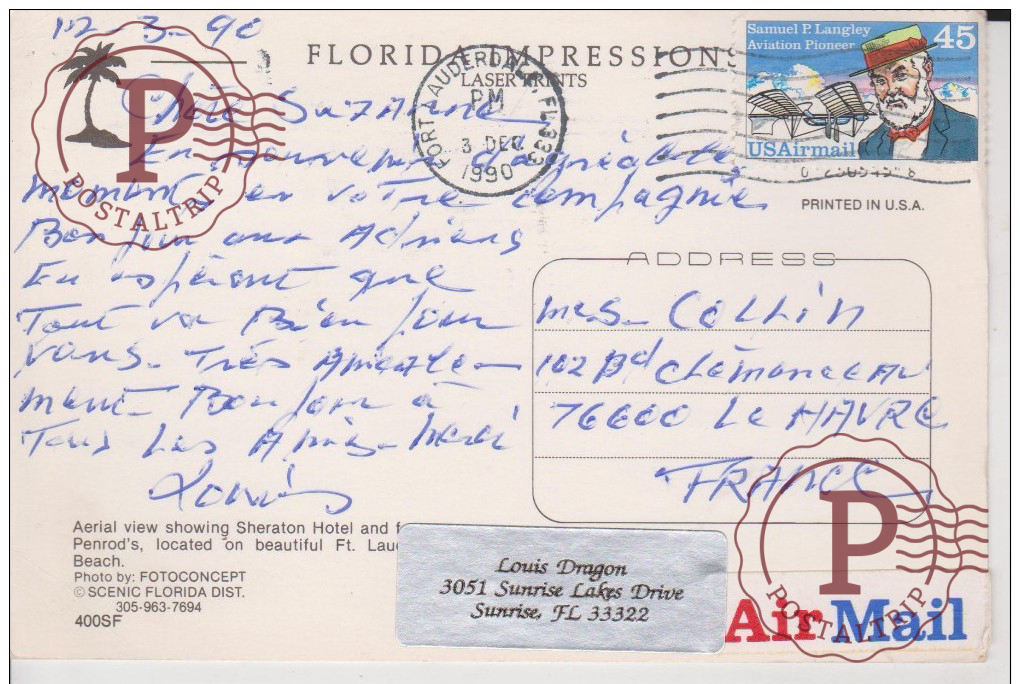 12-3-90
FLORIDA IMPRESSIONS
LASER PRINTS
FORT LAUDERDALE, FL 333
PM
3 DEC
1990
Samuel P. Langley
Aviation Pioneer
45
USAirmail
PRINTED IN U.S.A.
Chère Suzanne
En souvenir d'agréable
moment en votre compagnie
Bonjour aux Adriens
En espérant que
Tout va Bien pour
vous. Très Amicale-
ment Bonjour à
Tous Les Amis - merci
Louis
ADDRESS
mes. COLLIN
102 Bd Clémenceau
76600 Le HAVRE
FRANCE
Aerial view showing Sheraton Hotel and f
Penrod's, located on beautiful Ft. Laud
Beach.
Photo by: FOTOCONCEPT
© SCENIC FLORIDA DIST.
305-963-7694
400SF
Louis Dragon
3051 Sunrise Lakes Drive
Sunrise, FL 33322
Air Mail
P
POSTALTRIP
P
POSTALTRIP